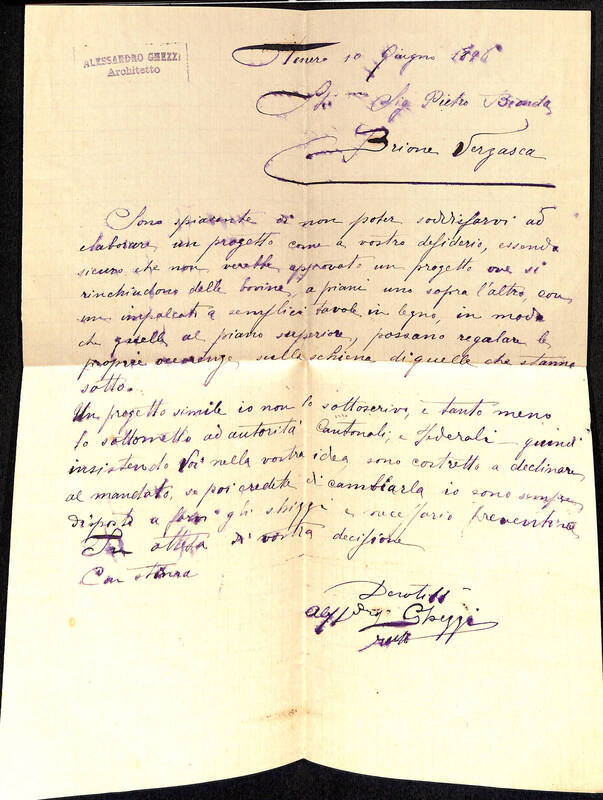 ALESSANDRO GHEZZI
Architetto
Tenero 10 Giugno 1896
Sig Pietro Bianda
Brione Vergasca
Sono spiacente di non poter soddisfarvi ad
elaborare un progetto come a vostro desiderio, essendo
sicuro che non verebbe approvato un progetto ove si
rinchiudono delle bovine, a piani uno sopra l'altro, con
un impalcati a semplici tavole in legno, in modo
che quelle al piano superiore, possano regalare le
proprie occorenze sulle schiena di quelle che stanno
sotto.
Un progetto simile io non lo sottoscrivo, e tanto meno
lo sottometto ad autorità Cantonali, e Federali quindi
insistendo Voi nella vostra idea, sono costretto a declinare
al mandato, se poi credete di cambiarla io sono sempre
disposto a farvi gli shizzi e necessario preventivo
In attesa di vostra decisione
Con stima
Devotiss
Ghezzi